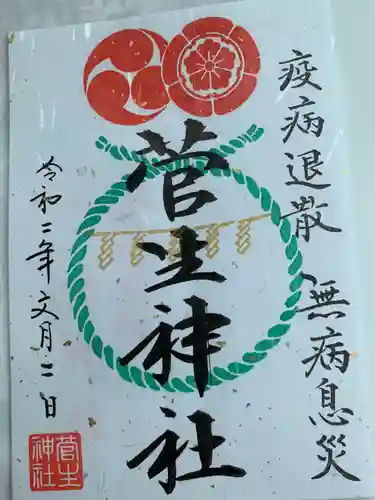 疫病退散 無病息災
菅生神社
令和二年文月二日
菅生
神社